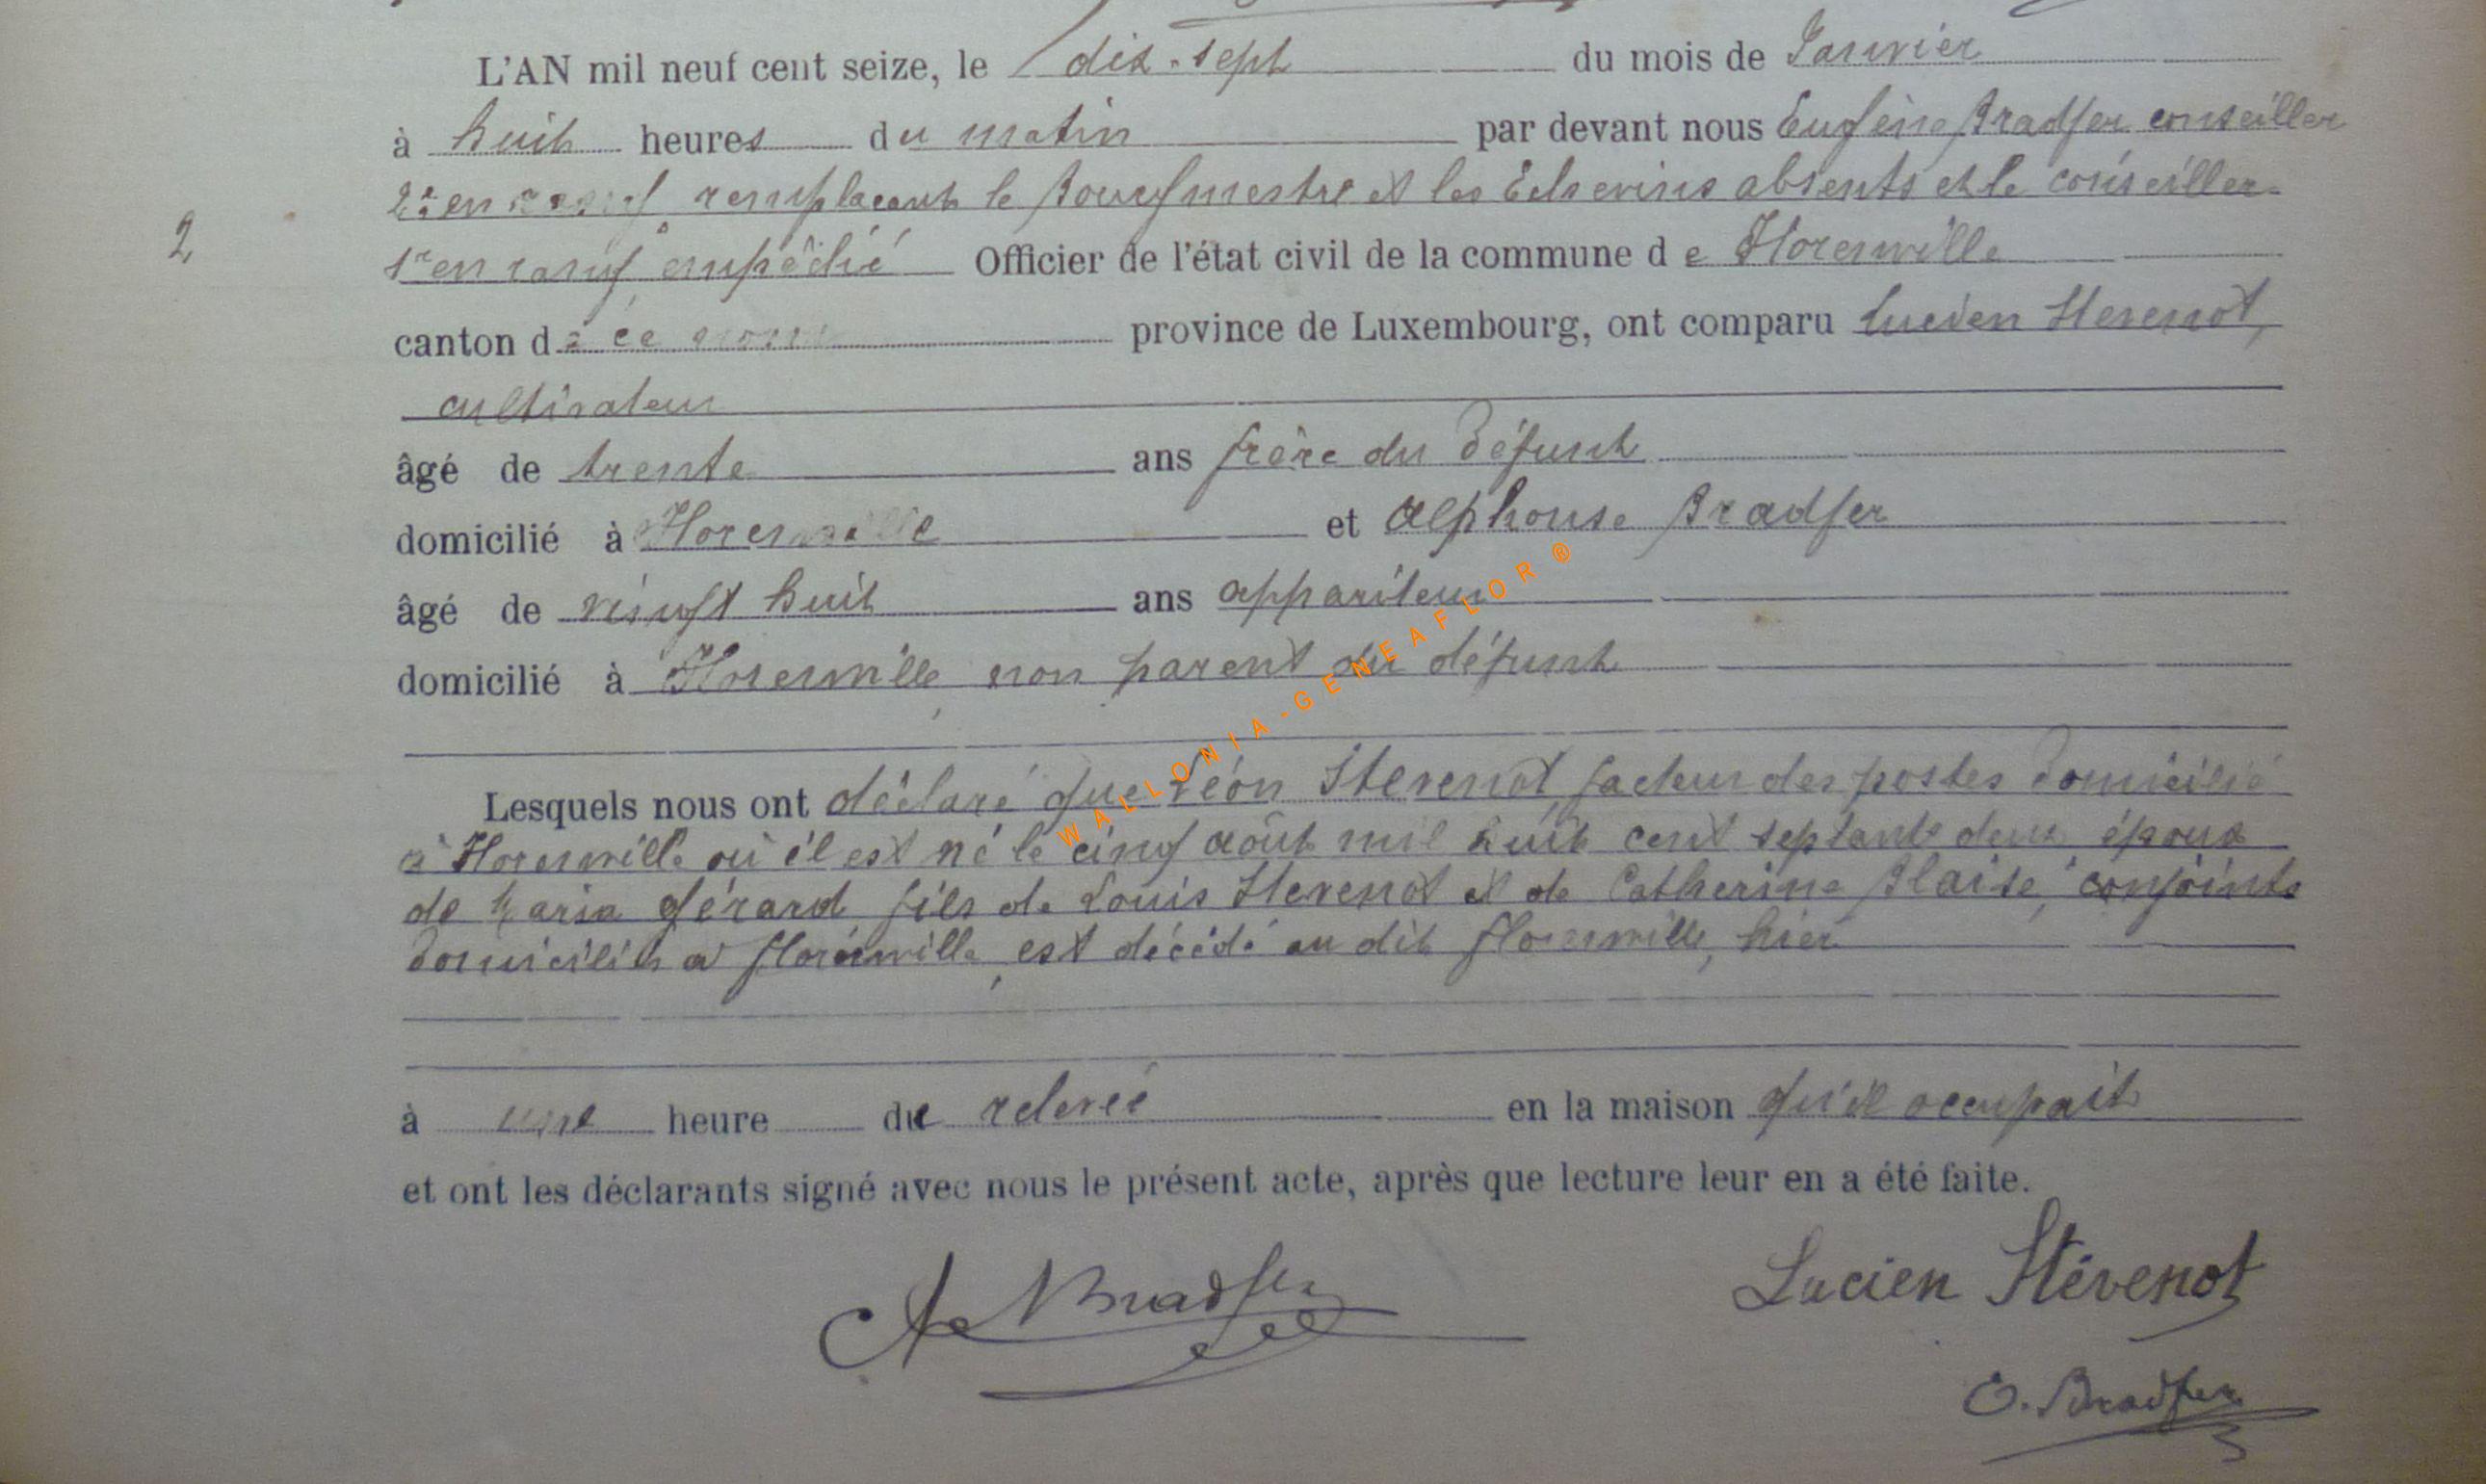 L'AN mil neuf cent seize, le dix-sept du mois de Janvier
à huit heures du matin par devant nous Eugène Bradfer conseiller
2e en rang remplaçant le Bourgmestre et les Echevins absents et le conseiller
2
1er en rang empêché Officier de l'état civil de la commune de Florenville
canton de ce nom province de Luxembourg, ont comparu Lucien Stevenot,
cultivateur
âgé de trente ans frère du défunt
domicilié à Florenville et Alphonse Bradfer
âgé de vingt huit ans appariteur
domicilié à Florenville, non parent du défunt
WALLONIA-GENEAFLOR ®
Lesquels nous ont déclaré que Léon Stevenot, facteur des postes domicilié
à Florenville où il est né le cinq août mil huit cent septante deux époux
de Maria Gérard fils de Louis Stevenot et de Catherine Blaise, conjoints
domiciliés à Florenville, est décédé au dit Florenville, hier
à une heure de relevée en la maison qu'il occupait
et ont les déclarants signé avec nous le présent acte, après que lecture leur en a été faite.
A Bradfer
Lucien Stévenot
E. Bradfer